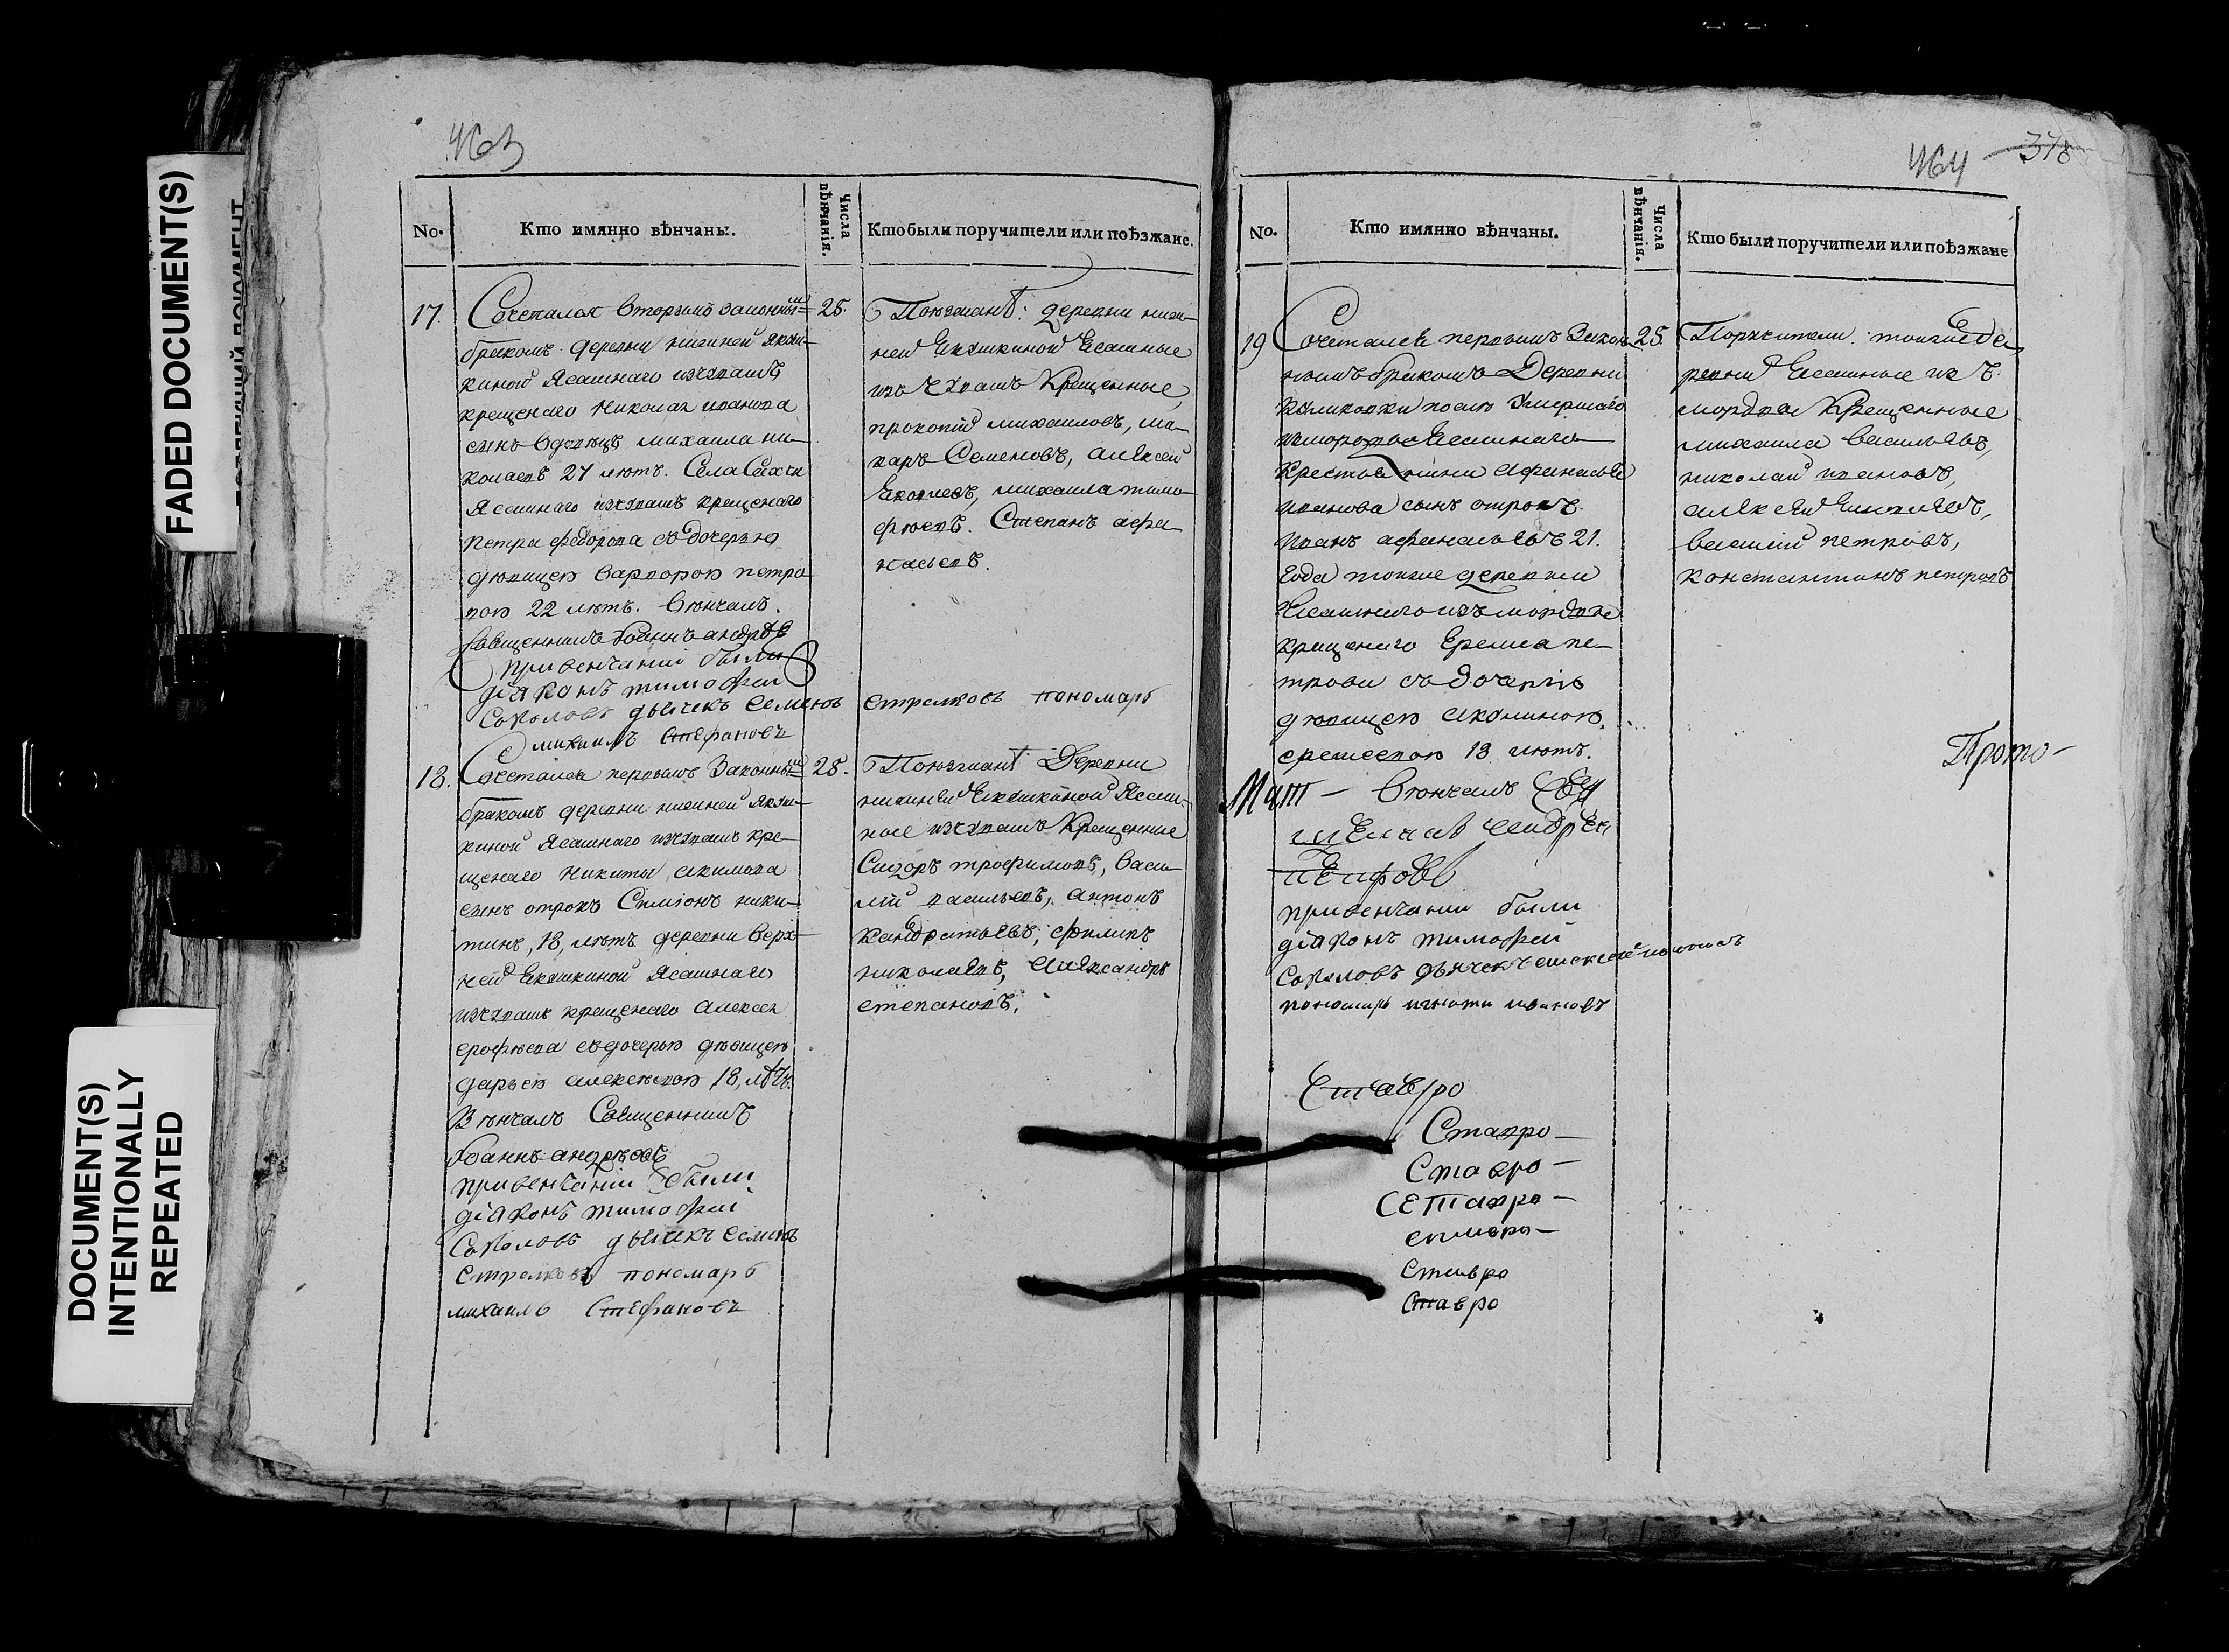 FADED DOCUMENT(S)
DOCUMENT(S)
INTENTIONALLY
REPEATED
463
No.
Кто имянно вѣнчаны.
Числа вѣнчанія.
Кто были поручители или поѣзжане.
17.
Сочетался вторымъ законнымъ
бракомъ деревни нижней якуш-
киной Ясашнаго изчувашъ
крещенаго Николая иванова
сынъ вдовецъ михаила ни-
колаевъ 27 лѣтъ. Села
Ясашнаго изчувашъ крещенаго
петра федорова съ дочерью
дѣвицею варварою петро-
вою 22 лѣтъ. Вѣнчалъ.
Священникъ Іоаннъ андрѣевъ
при венчаніи были
діаконъ тимофей
Соколовъ дьячекъ Семенъ
стрелковъ пономарь
михаилъ Стефановъ
25.
Поѣзжанѣ: деревни ниж-
ней Екушкиной Есашные
изъ чувашъ Крещенные,
прокопій михаиловъ, ма-
каръ Семеновъ, алексей
михаила тимо-
фѣевъ. Степанъ афа-
насьевъ.
18.
Сочетался первымъ Законнымъ
бракомъ деревни нижней Якуш-
киной Ясашнаго изчувашъ кре-
щенаго Никиты акимова
сынъ отрокъ Симіонъ ники-
тинъ, 18, лѣтъ деревни верх-
ней Екушкиной Ясашнаго
изчувашъ крещенаго Алексея
ерофѣева съ дочерью дѣвицею
дарьею алексѣевою 18, лѣтъ.
Вѣнчалъ Священникъ
Іоаннъ андрѣевъ
при венчаніи были
діаконъ тимофей
Соколовъ дьячекъ Семенъ
Стрелковъ пономарь
михаилъ Стефановъ
25.
Поѣзжанѣ Деревни
нижней Екушкиной Ясаш-
ные изчувашъ Крещенные
Сидоръ трофимовъ, васи-
лій васильевъ, антонъ
Кандратьевъ, филипъ
николаевъ, Александръ
степановъ.
464
378
No.
Кто имянно вѣнчаны.
Числа вѣнчанія.
Кто были поручители или поѣзжане
19
Сочетался первымъ Закон-
нымъ бракомъ Деревни
Куликовки после Умершаго
Есашнаго
Крестьянина афанасья
иванова сынъ отрокъ
иванъ афанасьевъ 21.
года тоежъ деревни
Есашнаго изъ мордвы
крещенаго Еремеа пе-
трова съ дочерью
дѣвицею акулиною
еремеевою 18 лѣтъ.
вѣнчалъ Свя
щенникъ андрей
при венчании были
діаконъ тимофей
Соколовъ дьячекъ алексей
пономарь игнати ивановъ
25.
Поручители: тоежъ де-
ревни Есашные изъ
мордвы Крещенные
михаила васильевъ,
николай ивановъ,
алексей
василій петровъ,
константинъ петровъ
Прото-
Ставро
Ставро-
Ставро-
Ставро-
Ставро-
Ставро
Ставро